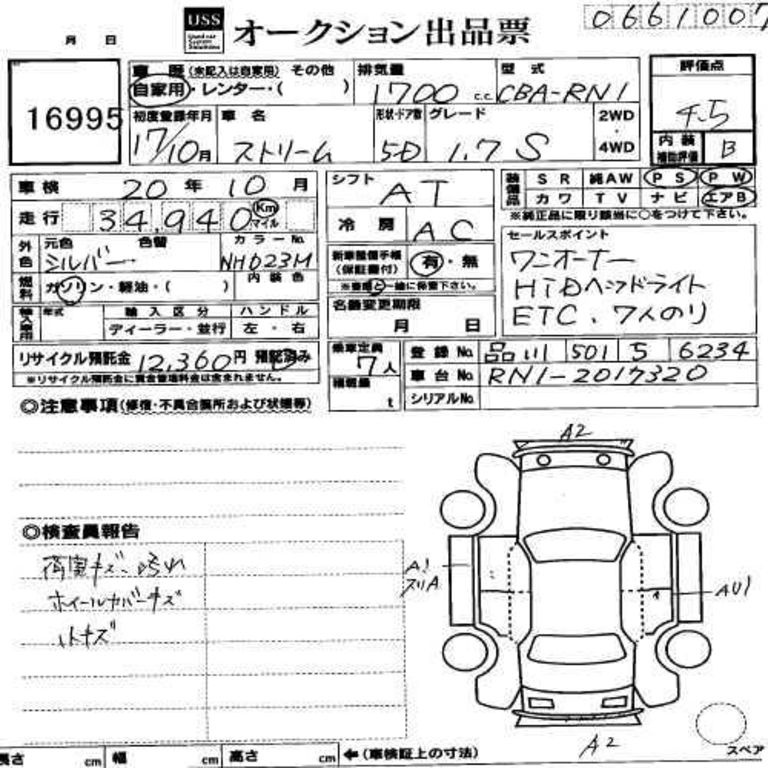 0661007
月 日 USS オークション出品票
Used car System Solutions
16995
車歴(未記入は自家用) その他 排気量 型式 評価点
自家用・レンター・( ) 1700 c.c. CBA-RN1 4.5
初度登録年月 車名 形状・ドア数 グレード 2WD・4WD 内装補助評価 B
17/10月 ストリーム 5D 1.7 S
車検 20年10月 シフト AT 装備品 SR 純AW PS PW
走行 34,940 Km マイル 冷房 AC カワ TV ナビ エアB
※純正品に限り該当に○をつけて下さい。
外色 元色 色替 カラーNo. セールスポイント
シルバー NH023M 新車整備手帳(保証書付) 有・無 ワンオーナー
燃料 ガソリン・軽油・( ) 内装色 HIDヘッドライト
名義変更期限 月 日 ETC、7人のり
輸入車用 年式 輸入区分 ハンドル
ディーラー・並行 左・右
リサイクル預託金 12,360円 預託済み 乗車定員 7人 登録No. 品川 501 5 6234
※リサイクル預託金に資金管理料金は含まれません。 積載量 t 車台No. RN1-2017320
シリアルNo.
◎注意事項(修復・不具合箇所および状態等)
A2
◎検査員報告
荷室キズ、汚れ
A1
スリA
AU1
ホイールカバーキズ
小キズ
A2
スペア
長さ cm 幅 cm 高さ cm ←(車検証上の寸法)